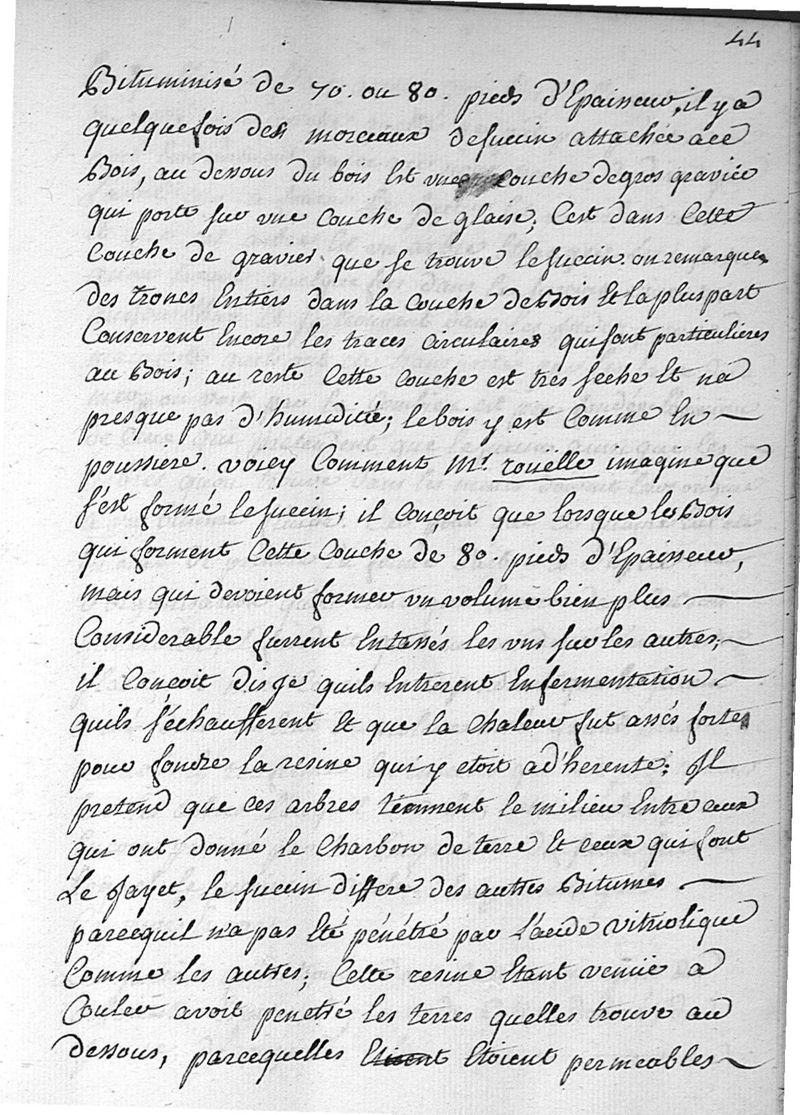 44
Bituminisé de 70. ou 80. pieds d'Epaisseur, il y a
quelque fois des morceaux de succin attachée a ce
Bois, au dessous du bois Est vne couche de gros gravier
qui porte sur vne Couche de glaise; C'est dans Cette
Couche de gravier que se trouve le succin. on remarque
des troncs Entiers dans la Couche de Bois Et la pluspart
Conservent Encore les traces Circulaires qui sont particulieres
au Bois; au reste Cette Couche est tres seche Et na
presque pas d'humidité; le bois y est Comme En
poussiere. voicy Comment Mr. rouelle imagine que
s'est formé le succin; il Conçoit que lorsque les Bois
qui forment Cette Couche de 80. pieds d'Epaisseur,
mais qui devoient former vn volume bien plus
Considerable furrent Entassés les vns sur les autres;
il Conçoit dis Je quils Entrerent En fermentation
quils s'échaufferent Et que la Chaleur fut assés forte
pour fondre la resine qui y etoit ad'herente; Il
pretend que ces arbres tiennent le milieu Entre ceux
qui ont donné le Charbon de terre Et ceux qui font
Le Jayet, le succin differe des autres Bitumes
parcequil n'a pas Eté pénétré par L'acide vitriolique
Comme les autres; Cette resine Etant venüe a
Couler avoit penetré les terres quelles trouve au
dessous, parcequelles Etoient permeables